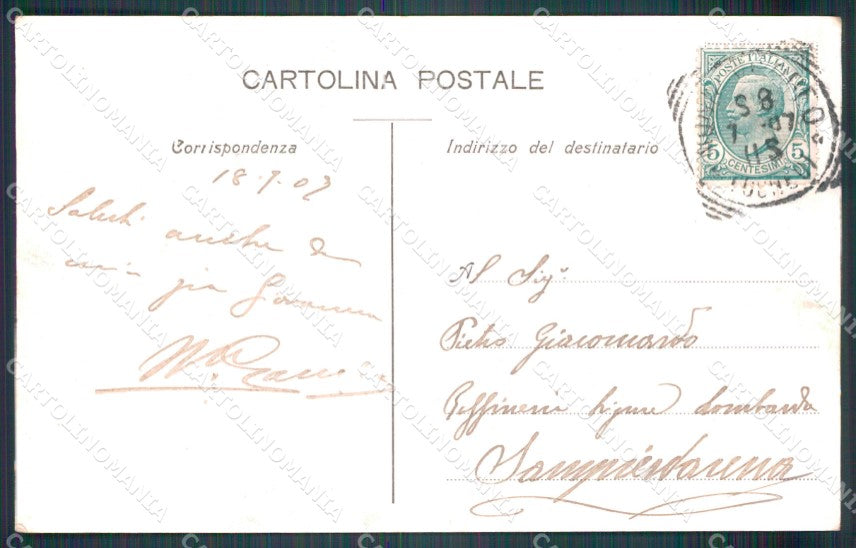 CARTOLINA POSTALE
Corrispondenza
18.7.07
Saluti anche da
mia zia Giovanna
Indirizzo del destinatario
POSTE ITALIANE
S 8
7 -07
5 CENTESIMI 5
Al Sigr.
Pietro Giacomardo
Raffineria Ligure Lombarda
Sampierdarena
CARTOLINOMANIA